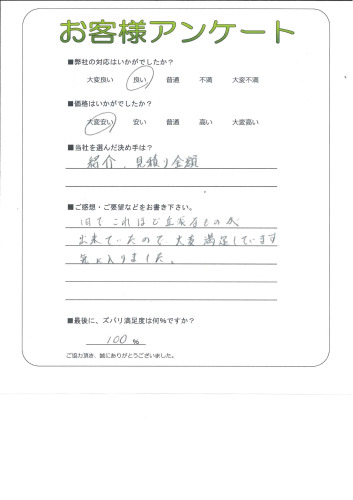 お客様アンケート
■弊社の対応はいかがでしたか?
大変良い 良い 普通 不満 大変不満
■価格はいかがでしたか?
大変安い 安い 普通 高い 大変高い
■当社を選んだ決め手は?
紹介、見積り金額
■ご感想・ご要望などをお書き下さい。
これほど立派なものが
出来ていたので大変満足しています
気に入りました。
■最後に、ズバリ満足度は何%ですか?
100 %
ご協力頂き、誠にありがとうございました。